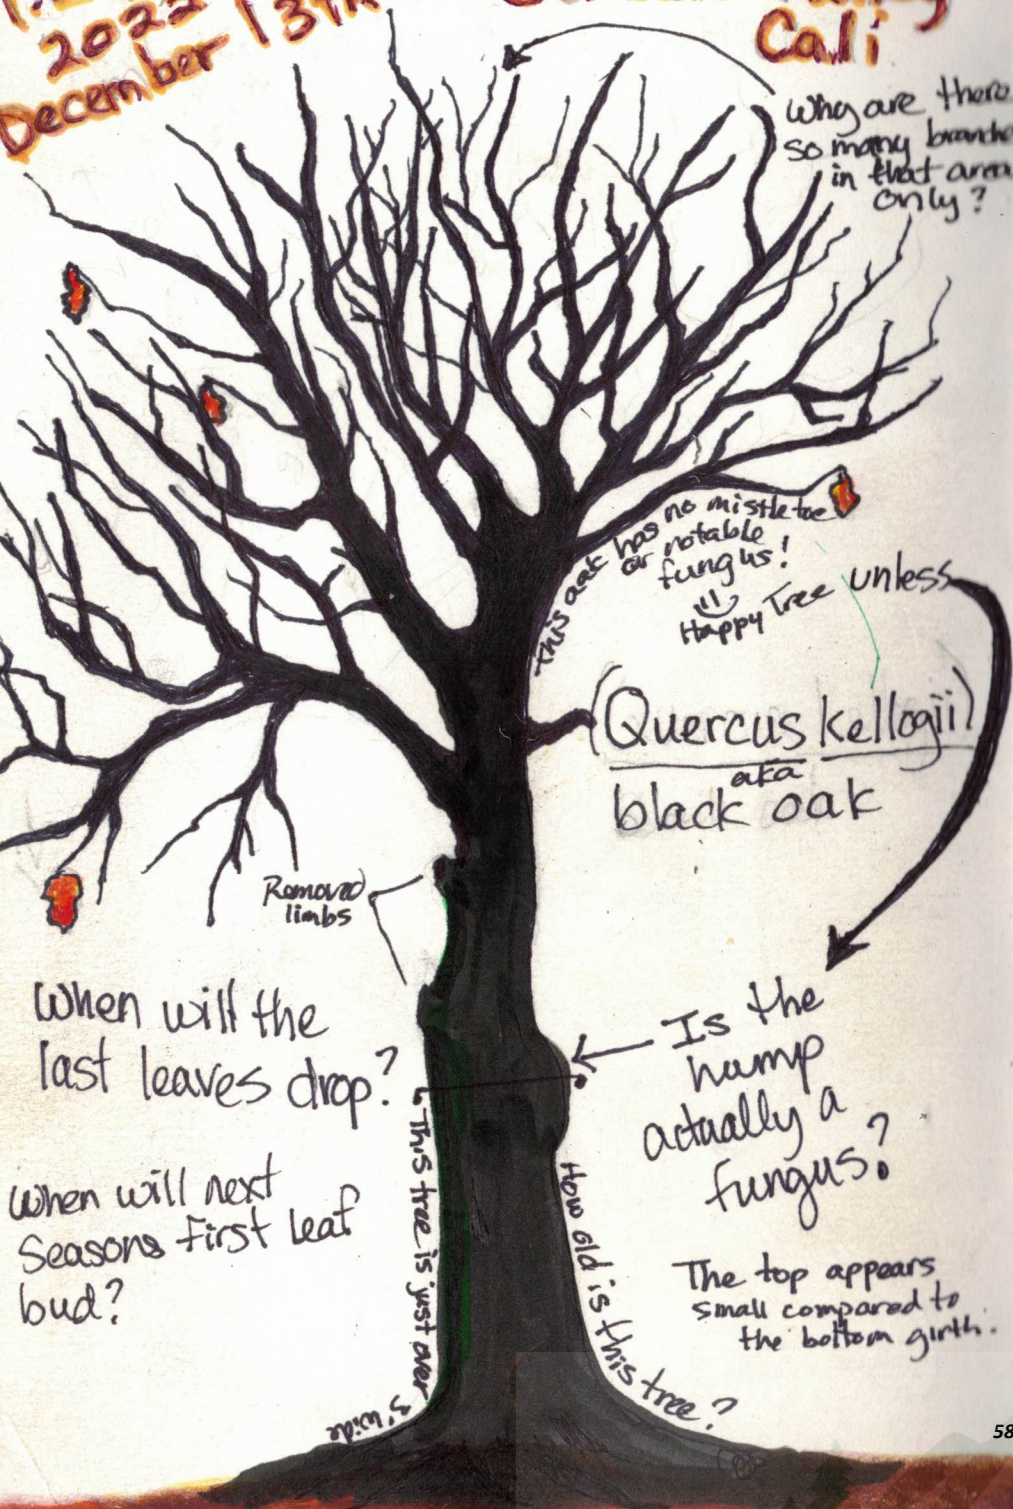 2022
December 13th
Cali
Why are there
so many
in that area
only?
This oak has no mistletoe
or notable
fungus!
Happy Tree unless
(Quercus kellogii)
aka
black oak
Removed
limbs
When will the
last leaves drop?
Is the
hump
actually a
fungus?
When will next
Seasons first leaf
bud?
This tree is just over
3' wide
How old is this tree?
The top appears
small compared to
the bottom girth.
58